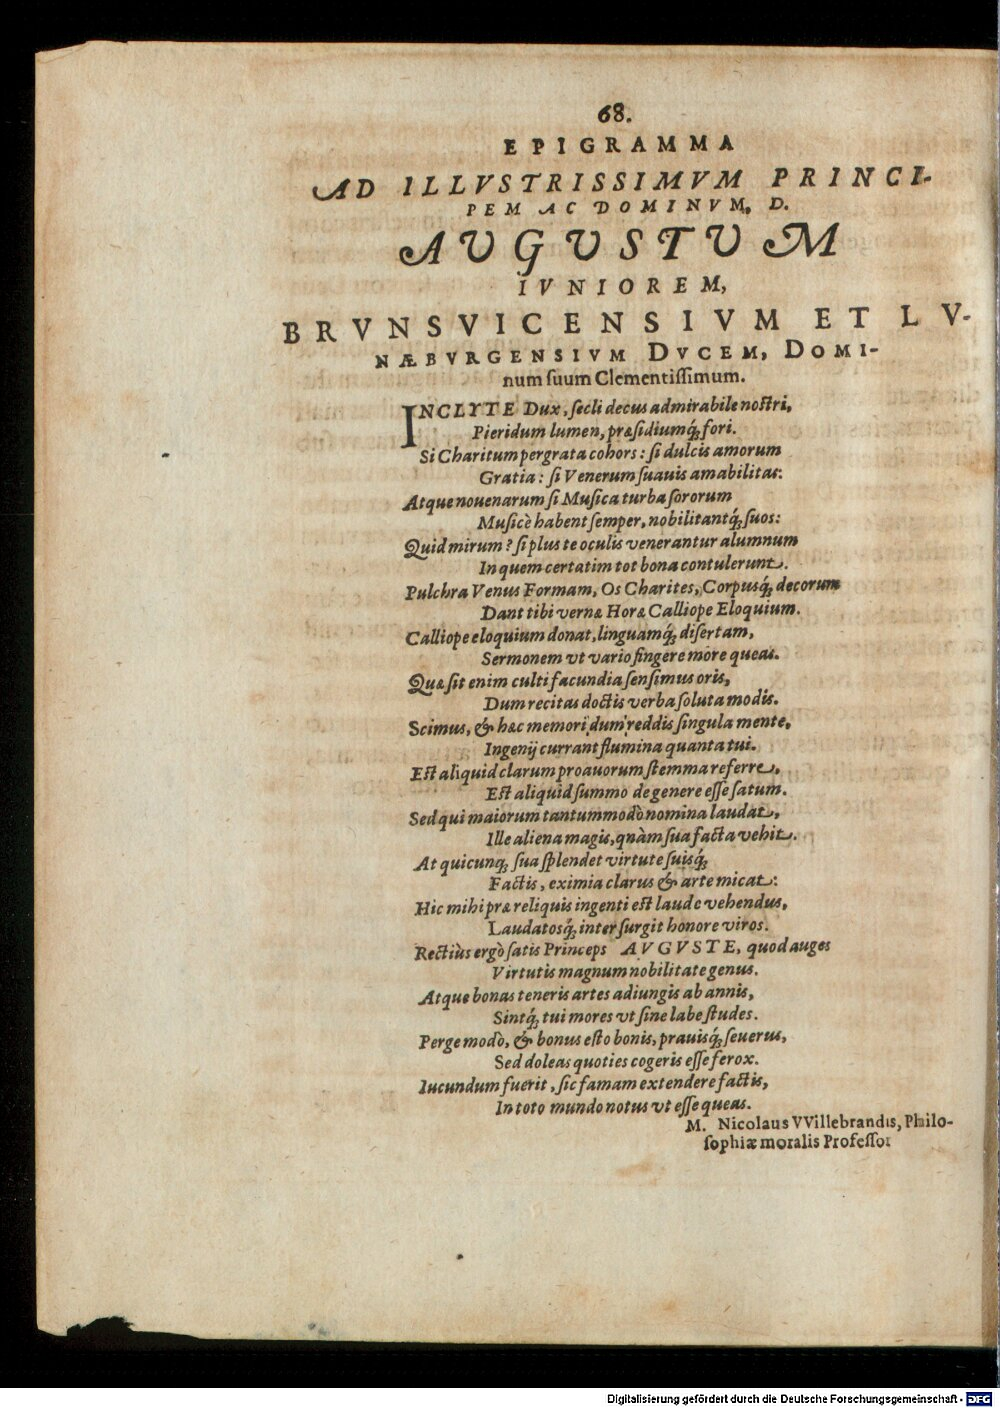 68.
EPIGRAMMA
AD ILLVSTRISSIMVM PRINCI-
PEM AC DOMINVM, D.
AUGUSTUM
IVNIOREM,
BRVNSVICENSIVM ET LV-
NÆBVRGENSIVM DVCEM, DOMI-
num ſuum Clementiſſimum.
INCLYTE Dux, ſecli decus admirabile noſtri,
Pieridum lumen, præſidiumq́; fori.
Si Charitum pergrata cohors: ſi dulcis amorum
Gratia: ſi Venerum ſuauis amabilitas:
Atque nouenarum ſi Muſica turba ſororum
Muſicè habent ſemper, nobilitantq́; ſuos:
Quid mirum? ſi plus te oculis venerantur alumnum
In quem certatim tot bona contulerunt.
Pulchra Venus Formam, Os Charites, Corpusq́; decorum
Dant tibi vernæ Horæ Calliope Eloquium.
Calliope eloquium donat, linguamq́; diſertam,
Sermonem vt vario fingere more queas.
Quæ ſit enim culti facundia ſenſimus oris,
Dum recitas doctis verba ſoluta modis.
Scimus, & hæc memori dum reddis ſingula mente,
Ingenij currant flumina quanta tui.
Eſt aliquid clarum proauorum ſtemma referre,
Eſt aliquid ſummo de genere eſſe ſatum.
Sed qui maiorum tantummodò nomina laudat,
Ille aliena magis, quàm ſua facta vehit.
At quicunq; ſua ſplendet virtute ſuisq́;
Factis, eximia clarus & arte micat:
Hic mihi præ reliquis ingenti eſt laude vehendus,
Laudatosq́; inter ſurgit honore viros.
Rectiùs ergò ſatis Princeps AVGVSTE, quod auges
Virtutis magnum nobilitate genus.
Atque bonas teneris artes adiungis ab annis,
Sintq́; tui mores vt ſine labe ſtudes.
Perge modò, & bonus eſto bonis, prauisq́; ſeuerus,
Sed doleas quoties cogeris eſſe ferox.
Iucundum fuerit, ſic famam extendere factis,
In toto mundo notus vt eſſe queas.
M. Nicolaus VVillebrandis, Philo-
ſophiæ moralis Profeſſor
Digitalisierung gefördert durch die Deutsche Forschungsgemeinschaft - DFG